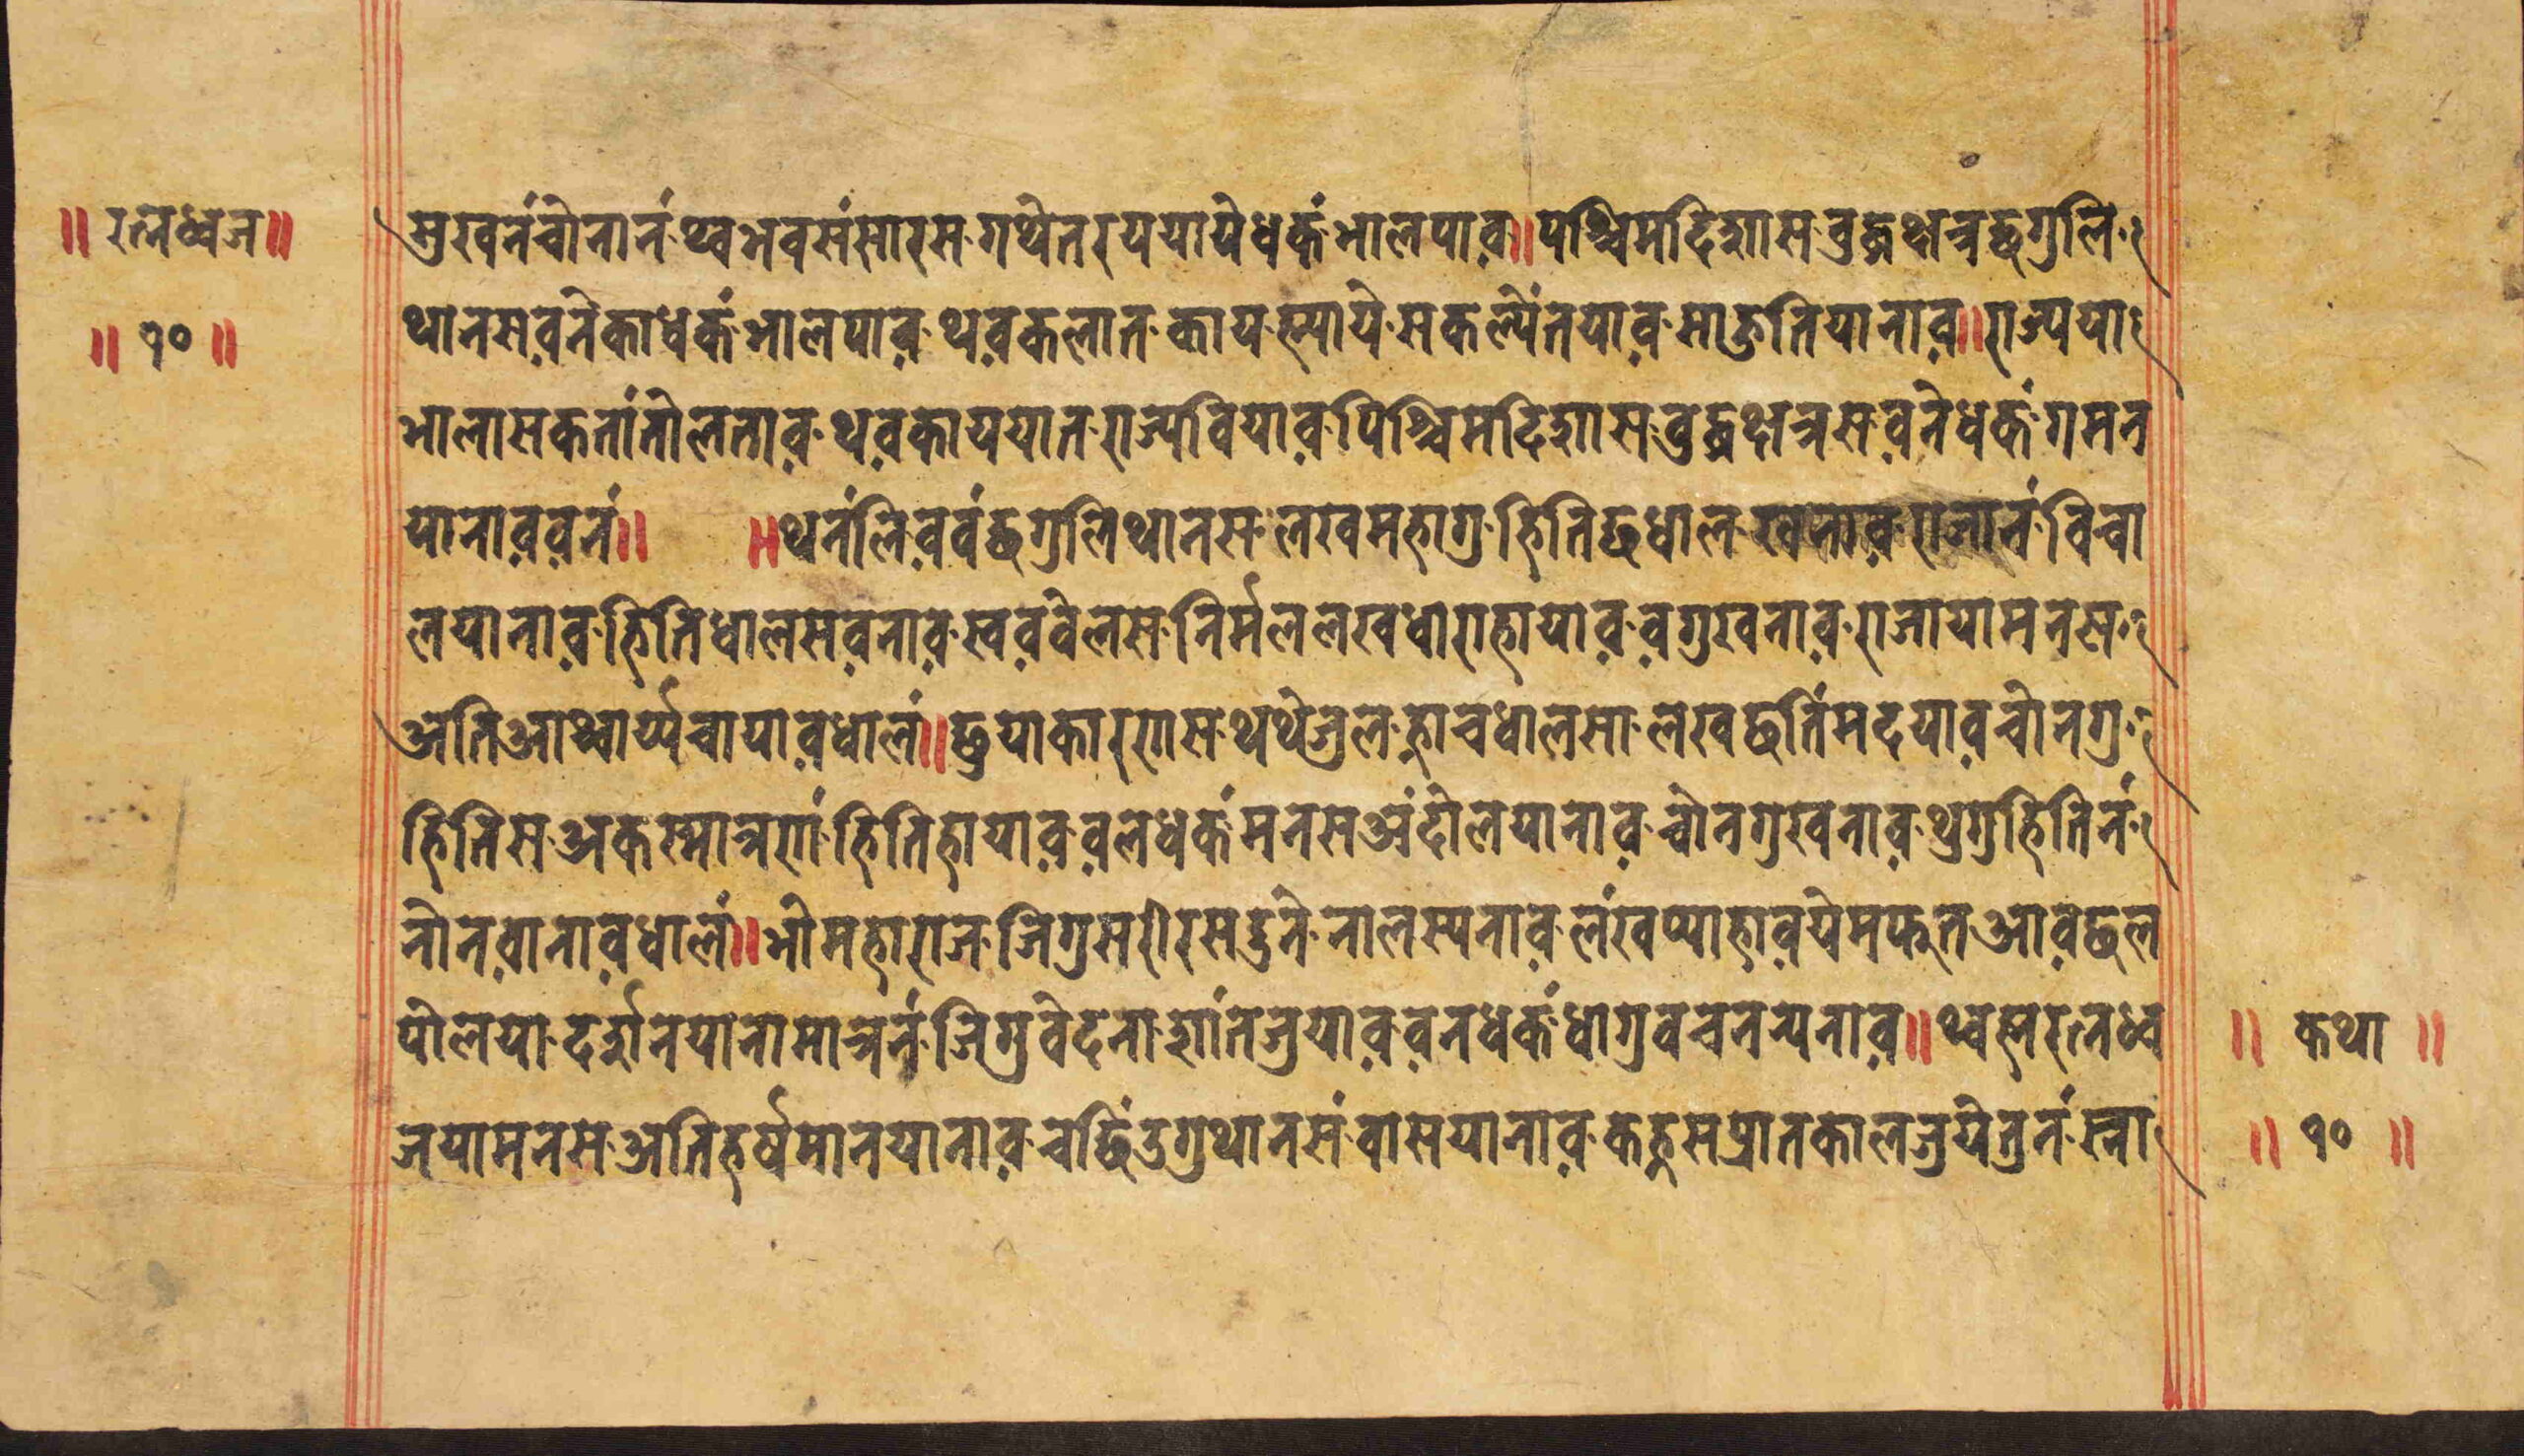 ॥ रत्नध्वज॥
॥ १० ॥
मुखनंचोनानं थ्वभवसंसारस गथेतरययायेधकंभालपाव॥पश्चिमदिशास वुद्धक्षत्रछगुलि
थानसवनेकाधकंभालपाव थवकलात काय स्याये सकल्येंतयाव साऊतियानाव॥राज्यया
भालासकतांतोलताव थवकाययात राज्यवियाव पिश्चिमदिशास वुद्धक्षत्रस वनेधकं गमन
यानाववनं॥ ॥थनंलि ववंछगुलिथानस लखमहागु हितिछधाल खनाव राजानं विचा
लयानाव हितिधालसवनाव स्वववेलस निर्मललखधाराहायाव वगुखनाव राजायामनस
अतिआश्चार्य्यचायावधालं॥छुयाकारणस थथेजुल ह्नाचधालसा लखछतिंमदयावचोनगु
हितिस अकस्मात्रणं हितिहायाव वलधकं मनसअंदोलयानाव च्वोनगुखनाव थुगुहितिनं
नोनवानावधालं॥भोमहाराज जिगुसरीरसदुने नालस्यनाव लंखप्याहावयेमफूत आवछल
पोलया दर्शनयानामात्रनं जिगुवेदनाशांतजुयाव वनधकंधागुवचनन्यनाव॥थ्वह्मरत्नध्व
जयामनस अतिहर्षमानयानाव चछिंउगुथानसं वासयानाव कह्नुसप्रातकालजुयेवुनं स्ना
॥ कथा ॥
॥ १० ॥